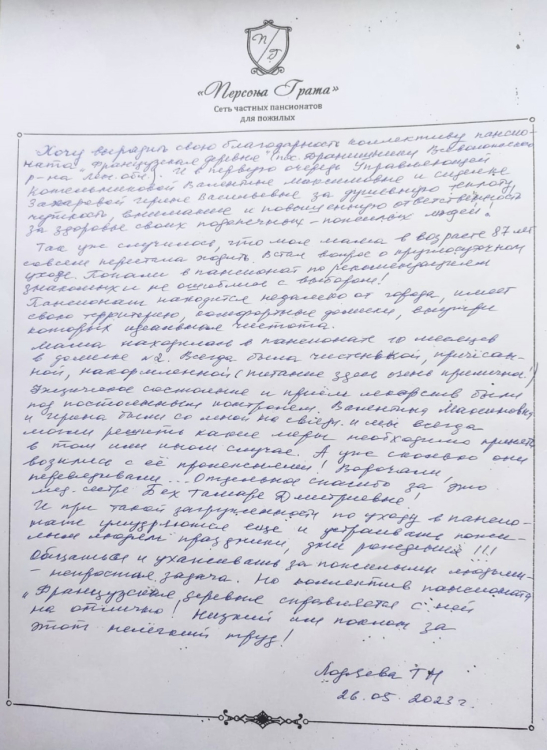 П Г
«Персона Грата»
Сеть частных пансионатов
для пожилых
Хочу выразить свою благодарность коллективу пансио-
ната "Французская деревня" (пос. Вранишники Всеволожского
р-на Лен. обл). И в первую очередь Управляющей
Котельниковой Валентине Максимовне и сиделке
Захаровой Ирине Васильевне за душевную теплоту,
чуткость, внимание и повышенную ответственность
за здоровье своих подопечных - пожилых людей.
Так уж случилось, что моя мама в возрасте 87 лет
совсем перестала ходить. Встал вопрос о круглосуточном
уходе. Попали в пансионат по рекомендациям
знакомых и не ошиблись с выбором!
Пансионат находится недалеко от города, имеет
свою территорию, комфортные домики, внутри
которых идеальная чистота.
Мама находилась в пансионате 10 месяцев
в домике №2. Всегда была чистенькой, причёсан-
ной, накормленной (питание здесь очень приличное!)
Физическое состояние и приём лекарств были
под постоянным контролем. Валентина Максимовна
и Ирина были со мной на связи и мы всегда
могли решить какие меры необходимо принять
в том или ином случае. А уж сколько они
возились с её пролежнями!
перевязывали... Отдельное спасибо за это
мед. сестре Бех Тамаре Дмитриевне!
И при такой загруженности по уходу в пансио-
нате умудряются ещё и устраивать пожи-
лым людям праздники, дни рождения!!!
Общаться и ухаживать за пожилыми людьми -
- непростая задача. Но коллектив пансионата
"Французская деревня справляется с ней
на отлично! Низкий им поклон за
этот нелёгкий труд!
ТН
26.05.2023г.